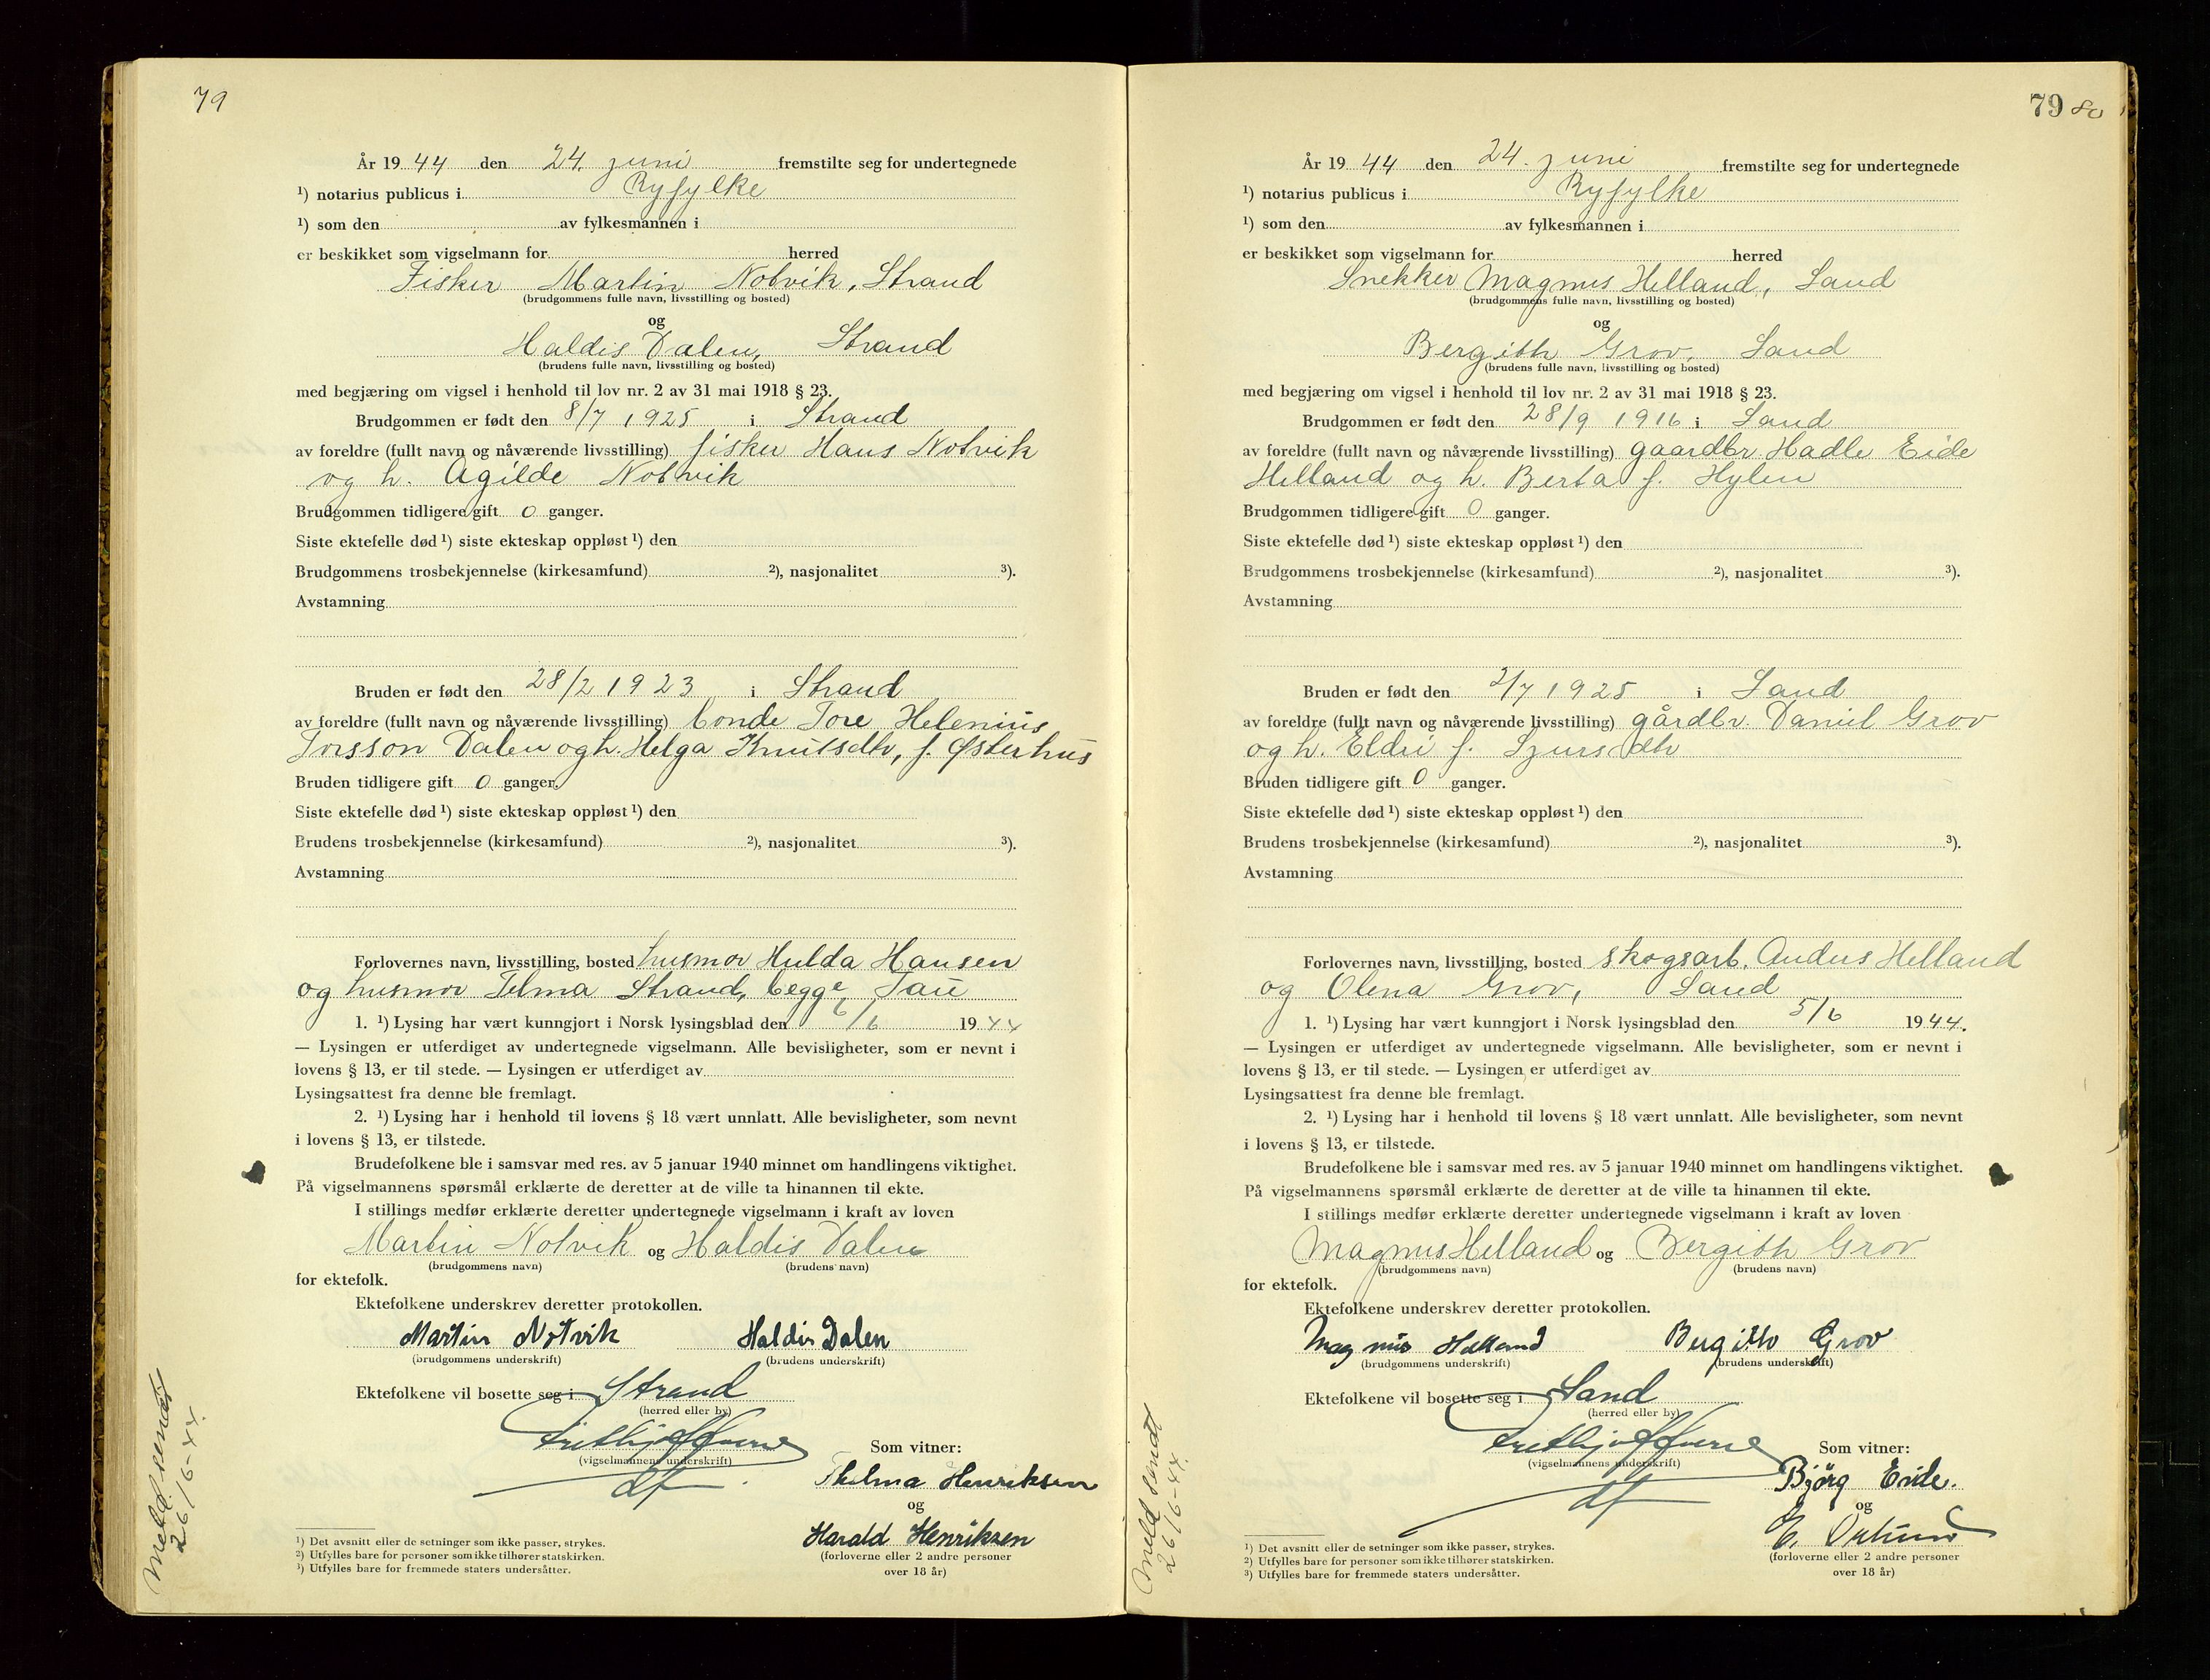 79
År 19 44 den 24. juni fremstilte seg for undertegnede
¹) notarius publicus i Ryfylke
¹) som den av fylkesmannen i
er beskikket som vigselmann for herred
Fisker Martin Notvik, Strand
(brudgommens fulle navn, livsstilling og bosted)
og
Haldis Dalen, Strand
(brudens fulle navn, livsstilling og bosted)
med begjæring om vigsel i henhold til lov nr. 2 av 31 mai 1918 § 23.
Brudgommen er født den 8/7 1925 i Strand
av foreldre (fullt navn og nåværende livsstilling) fisker Hans Notvik
og h. Agilde Notvik
Brudgommen tidligere gift 0 ganger.
Siste ektefelle død ¹) siste ekteskap oppløst ¹) den
Brudgommens trosbekjennelse (kirkesamfund) ²), nasjonalitet ³).
Avstamning
Bruden er født den 28/2 1923 i Strand
av foreldre (fullt navn og nåværende livsstilling) bonde Tore Helenius
Torsson Dalen og h. Helga Knutsdtr, f. Østerhus
Bruden tidligere gift 0 ganger.
Siste ektefelle død ¹) siste ekteskap oppløst ¹) den
Brudens trosbekjennelse (kirkesamfund) ²), nasjonalitet ³).
Avstamning
Forlovernes navn, livsstilling, bosted husmor Hulda Hansen
og husmor Telma Strand, begge Tau
1. ¹) Lysing har vært kunngjort i Norsk lysingsblad den 6/6 1944
— Lysingen er utferdiget av undertegnede vigselmann. Alle bevisligheter, som er nevnt i
lovens § 13, er til stede. — Lysingen er utferdiget av
Lysingsattest fra denne ble fremlagt.
2. ¹) Lysing har i henhold til lovens § 18 vært unnlatt. Alle bevisligheter, som nevnt
i lovens § 13, er tilstede.
Brudefolkene ble i samsvar med res. av 5 januar 1940 minnet om handlingens viktighet.
På vigselmannens spørsmål erklærte de deretter at de ville ta hinannen til ekte.
I stillings medfør erklærte deretter undertegnede vigselmann i kraft av loven
Martin Notvik og Haldis Dalen
(brudgommens navn) (brudens navn)
for ektefolk.
Ektefolkene underskrev deretter protokollen.
Martin Notvik Haldis Dalen
(brudgommens underskrift) (brudens underskrift)
Ektefolkene vil bosette seg i Strand
(herred eller by)
(vigselmannens underskrift)
df
Som vitner:
Thelma Henriksen
og
Harald Henriksen
(forloverne eller 2 andre personer
over 18 år)
¹) Det avsnitt eller de setninger som ikke passer, strykes.
²) Utfylles bare for personer som ikke tilhører statskirken.
³) Utfylles bare for fremmede staters undersåtter.
Meld. sendt
26/6-44.
79 80
År 19 44 den 24. juni fremstilte seg for undertegnede
¹) notarius publicus i Ryfylke
¹) som den av fylkesmannen i
er beskikket som vigselmann for herred
Snekker Magnus Helland, Sand
(brudgommens fulle navn, livsstilling og bosted)
og
Bergith Grov, Sand
(brudens fulle navn, livsstilling og bosted)
med begjæring om vigsel i henhold til lov nr. 2 av 31 mai 1918 § 23.
Brudgommen er født den 28/9 1916 i Sand
av foreldre (fullt navn og nåværende livsstilling) gaardbr. Hadle Eide
Helland og h. Berta f. Hylen
Brudgommen tidligere gift 0 ganger.
Siste ektefelle død ¹) siste ekteskap oppløst ¹) den
Brudgommens trosbekjennelse (kirkesamfund) ²), nasjonalitet ³).
Avstamning
Bruden er født den 2/7 1925 i Sand
av foreldre (fullt navn og nåværende livsstilling) gårdbr. Daniel Grov
og h. Eldri f. Sjursdtr
Bruden tidligere gift 0 ganger.
Siste ektefelle død ¹) siste ekteskap oppløst ¹) den
Brudens trosbekjennelse (kirkesamfund) ²), nasjonalitet ³).
Avstamning
Forlovernes navn, livsstilling, bosted skogsarb. Anders Helland
og Olena Grov, Sand
1. ¹) Lysing har vært kunngjort i Norsk lysingsblad den 5/6 1944.
— Lysingen er utferdiget av undertegnede vigselmann. Alle bevisligheter, som er nevnt i
lovens § 13, er til stede. — Lysingen er utferdiget av
Lysingsattest fra denne ble fremlagt.
2. ¹) Lysing har i henhold til lovens § 18 vært unnlatt. Alle bevisligheter, som nevnt
i lovens § 13, er tilstede.
Brudefolkene ble i samsvar med res. av 5 januar 1940 minnet om handlingens viktighet.
På vigselmannens spørsmål erklærte de deretter at de ville ta hinannen til ekte.
I stillings medfør erklærte deretter undertegnede vigselmann i kraft av loven
Magnus Helland og Bergith Grov
(brudgommens navn) (brudens navn)
for ektefolk.
Ektefolkene underskrev deretter protokollen.
Magnus Helland Bergith Grov
(brudgommens underskrift) (brudens underskrift)
Ektefolkene vil bosette seg i Sand
(herred eller by)
(vigselmannens underskrift)
df
Som vitner:
Bjørg Eide.
og
(forloverne eller 2 andre personer
over 18 år)
¹) Det avsnitt eller de setninger som ikke passer, strykes.
²) Utfylles bare for personer som ikke tilhører statskirken.
³) Utfylles bare for fremmede staters undersåtter.
Meld sendt
26/6-44.